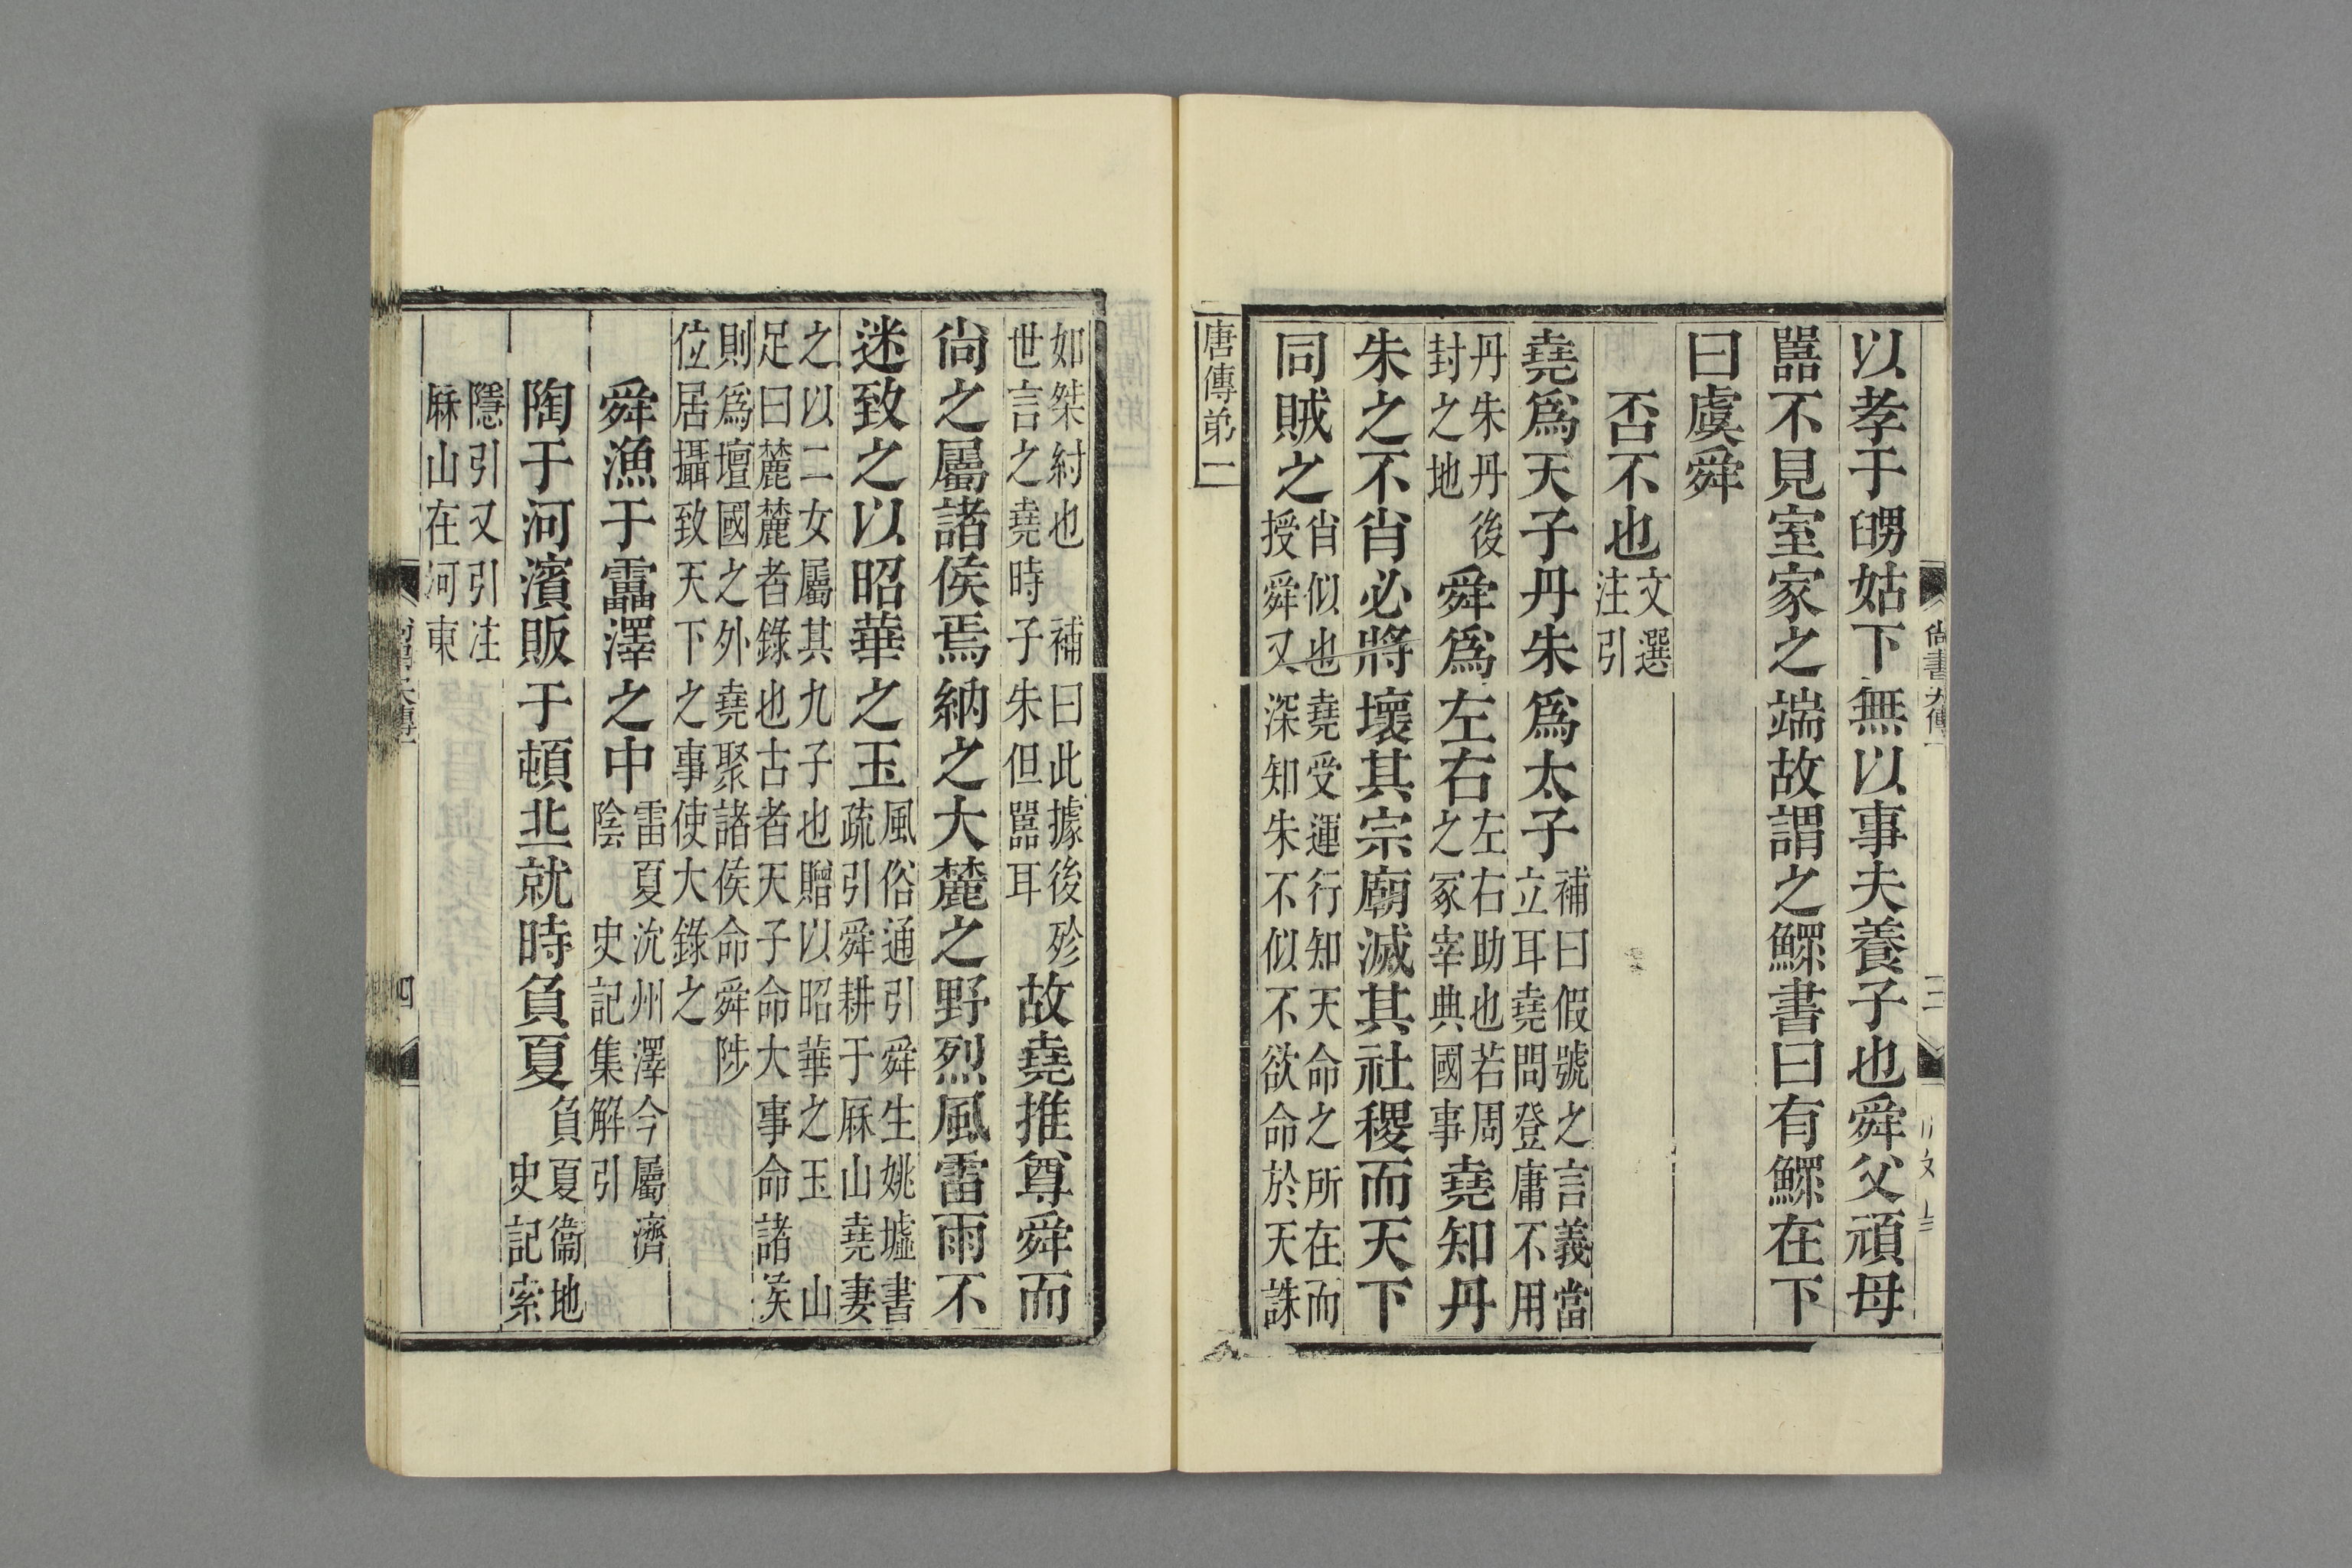 尚書大傳一
三
以孝于舅姑下無以事夫養子也舜父頑母
嚚不見室家之端故謂之鰥書曰有鰥在下
曰虞舜
否不也文選
注引
堯爲天子丹朱爲太子補曰假號之言義當
立耳堯問登庸不用
丹朱丹後
封之地
舜爲左右左右助也若周
之冢宰典國事
堯知丹
朱之不肖必將壞其宗廟滅其社稷而天下
同賊之肖似也堯受運行知天命之所在而
授舜又深知朱不似不欲命於天誅
唐傳弟二
如桀紂也 補曰此據後殄
世言之堯時子朱但嚚耳
故堯推尊舜而
尚之屬諸侯焉納之大麓之野烈風雷雨不
迷致之以昭華之玉風俗通引舜生姚墟書
疏引舜耕于厤山堯妻
之以二女屬其九子也贈以昭華之玉 山
足曰麓麓者錄也古者天子命大事命諸矦
則爲壇國之外堯聚諸侯命舜陟
位居攝致天下之事使大錄之
舜漁于靁澤之中雷夏沇州澤今屬濟
陰 史記集解引
陶于河濱販于頓丘就時負夏負夏衞地
史記索
隱引又引注
厤山在河東
四